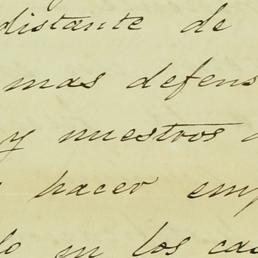 distante de
mas defens
y nuestros
hacer emp
en los cas